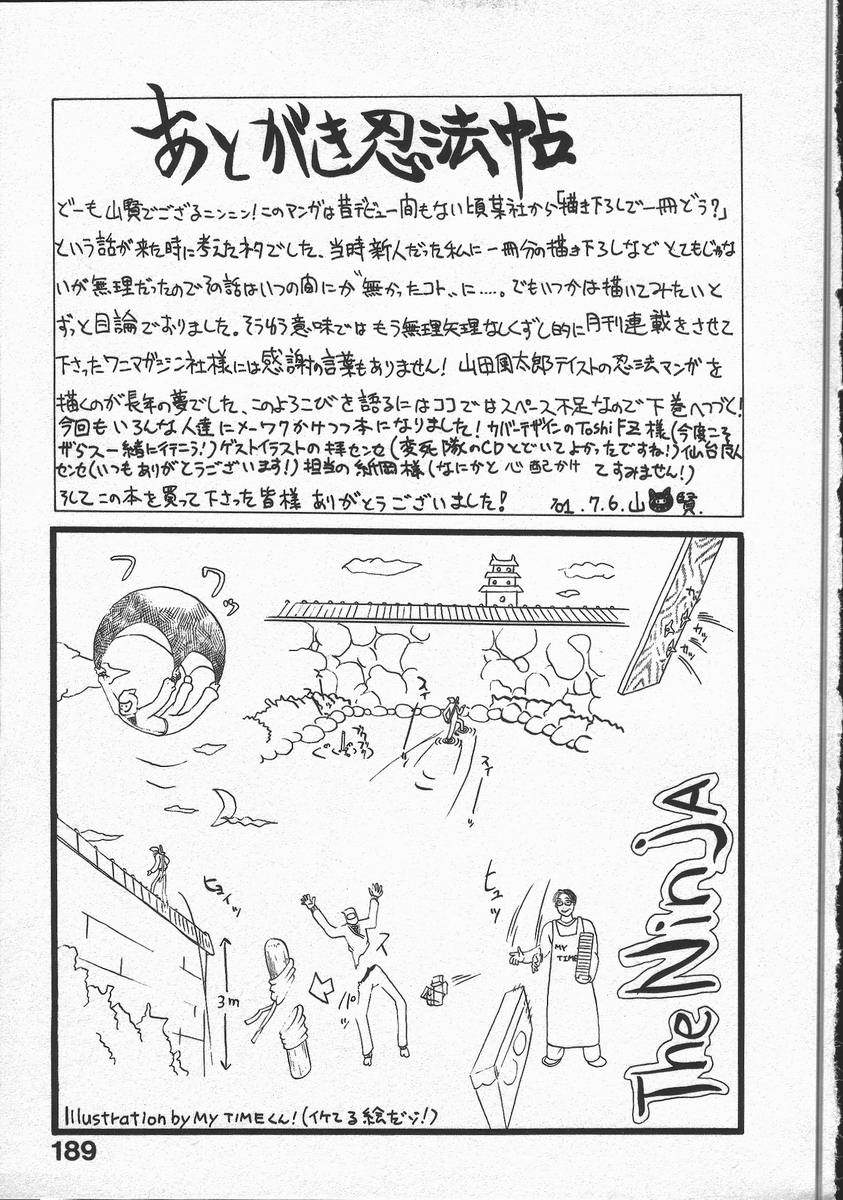 あとがき忍法帖
どーも山賢でござるニンニン！このマンガは昔デビュー間もない頃某社から「描き下ろしで一冊どう？」
という話が来た時に考えたネタでした、当時新人だった私に一冊分の描き下ろしなどとてもじゃな
いが無理だったのでその話はいつの間にか"無かったコト"に……。でもいつかは描いてみたいと
ずっと目論でおりました。そうゆう意味ではもう無理矢理なしくずし的に月刊連載をさせて
下さったワニマガジン社様には感謝の言葉もありません！山田風太郎テイストの忍法マンガを
描くのが長年の夢でした、このよろこびを語るにはココではスペース不足なので下巻へつづく！
今回もいろんな人達にメーワクかけつつ本になりました！カバーデザインのToshi F.Z様（今度こそ
ザらスー緒に行こう！）ゲストイラストの拝センセ（変死隊のCDとどいてよかったですね！）仙台
センセ（いつもありがとうございます！）担当の紙岡様（なにかと心配かけてすみません！）
そしてこの本を買って下さった皆様ありがとうございました！ '01.7.6.山賢.
フワッ
カッ
カッ
カッ
スイ
ブクブクブク
スイーッ
The Ninja
ヒョイッ
ヒュッ
ス
パ°
3m
MY
TIME
Illustration by MY TIMEくん！（イケてる絵だゾ！）
189